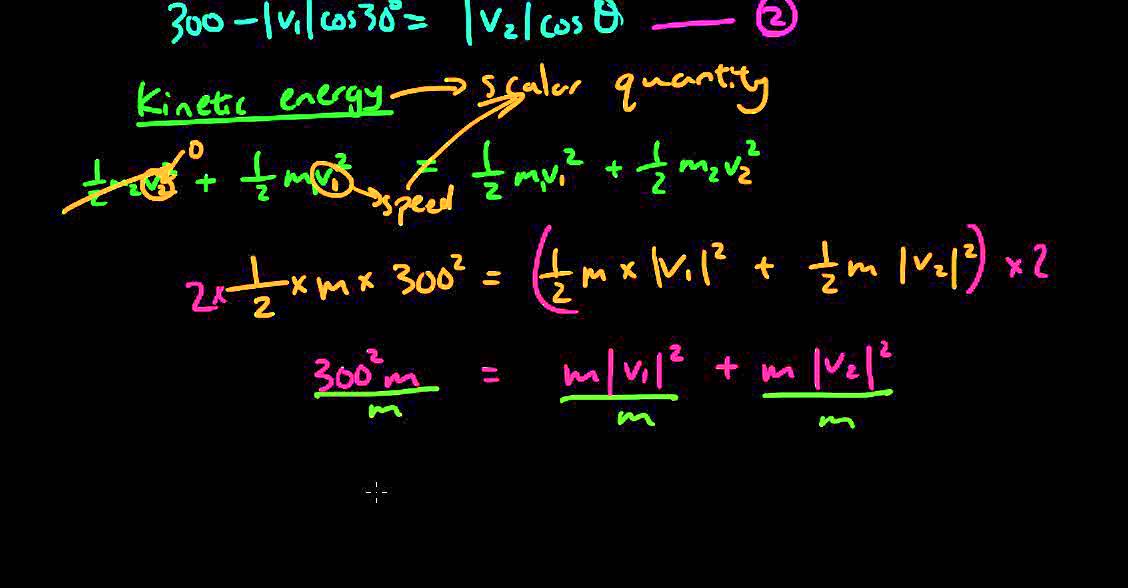 300 - |v₁| cos 30° = |v₂| cos θ —— ②
Kinetic energy → scalar quantity
½ m₂v₂² 0 + ½ m₁v₁² = ½ m₁v₁² + ½ m₂v₂²
speed
2 × ½ × m × 300² = (½ m × |v₁|² + ½ m |v₂|²) × 2
300²m/m = m|v₁|²/m + m|v₂|²/m